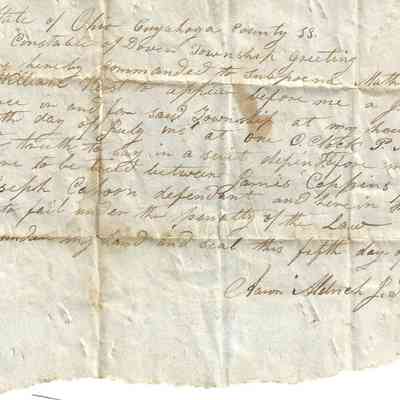 State of Ohio Cuyahoga County SS.
Constable of Dover Township Greeting
hereby commanded to Subpoena
William West to appear before me a
in and for said Township at my house
th day of July ins at one O. Clock P
truth to say in a suit depending
to be tried between James Coppins
Joseph Cahoon defendant and herein
fail under the penalty of the Law
under my hand and seal this fifth day of
Aaron Aldrich J.